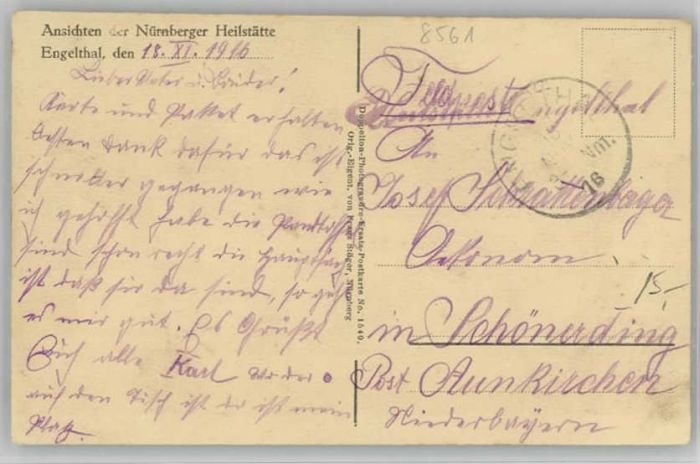 8561
Ansichten der Nürnberger Heilstätte
Engelthal, den 18. XI. 1916
Lieber Vater u. Brüder!
Karte und Paket erhalten
besten Dank dafür das ist
schneller gegangen wie
ich gehofft habe die
sind schon recht die Hauptsache
ist daß sie da sind, so geht
es mir gut. Es Grüßt
Euch alle Karl wo der o
auf den Tisch ist da ist mein
Platz.
Doppelton-Photogravüre-Ersatz-Postkarte No. 1640.
Orig.-Eigent. von Stöger, Nürnberg
Feldpost Engelthal
An
Josef Schrattenlager
Oekonom
in Schönerding
Post Aunkirchen
Niederbayern
Vm.
16
15,-